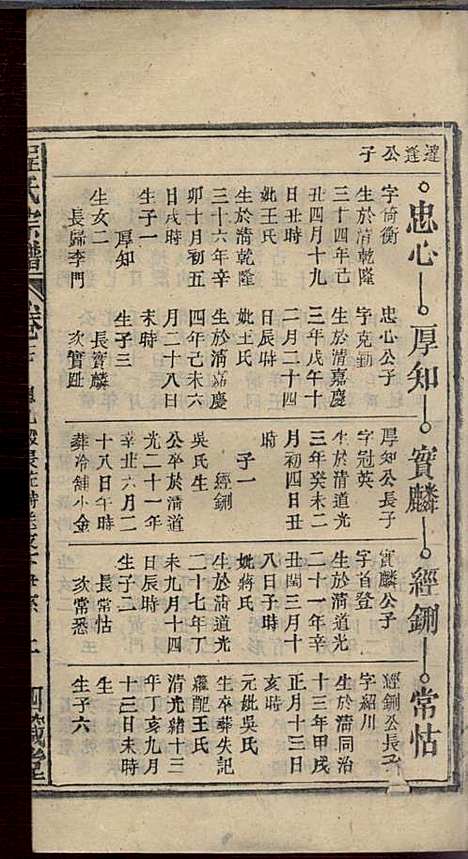 逢逢公子
忠心
厚知
寶麟
經鍘
常怙
字尚衡
生於清乾隆
三十四年己
丑四月十九
日丑時
妣王氏
生於清乾隆
三十六年辛
卯十月初五
日戌時
生子一
厚知
生女二
長歸李門
忠心公子
字克勤
生於清嘉慶
三年戊午十
二月二十四
日辰時
妣王氏
生於清嘉慶
四年己未六
月二十八日
未時
生子三
長寶麟
次寶趾
厚知公長子
字冠英
生於清道光
三年癸未二
月初四日丑
時
子一
經鍘
吳氏生
公卒於清道
光二十一年
辛丑六月二
十八日午時
葬冷舖小金
寶麟公子
字首登
生於清道光
二十一年辛
丑閏三月十
八日子時
妣蔣氏
生於清道光
二十七年丁
未九月十四
日辰時
生子二
長常怙
次常悉
經鍘公長子
字紹川
生於清同治
十三年甲戌
正月十三日
亥時
元妣吳氏
生卒葬失記
繼配王氏
清光緒十三
年丁亥九月
十三日未時
生
生子六
程氏宗譜
卷